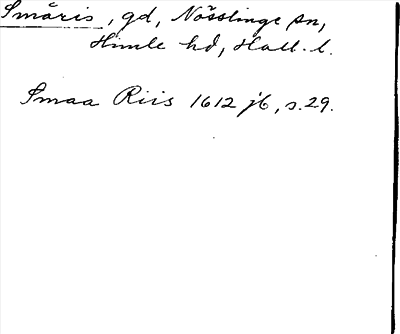 Smäris, gd, Nösslinge sn,
Himle hd, Hall. l.
Smaa Riis 1612 jb, s. 29.